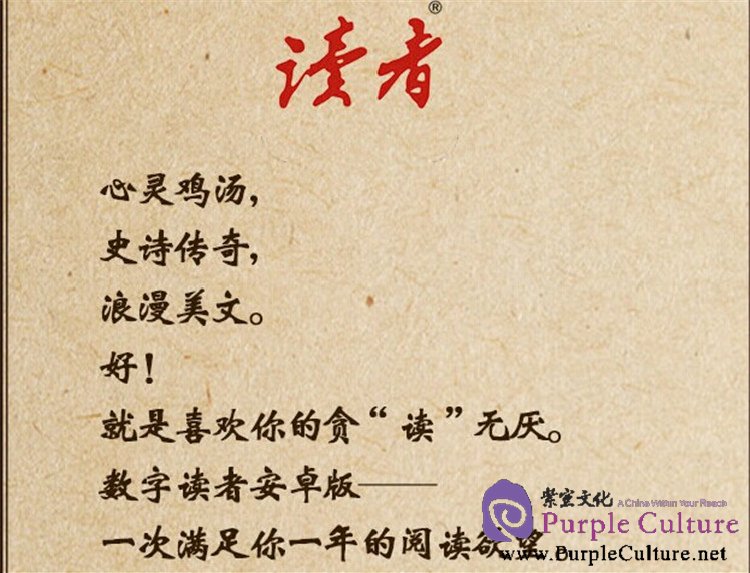 读者®
心灵鸡汤，
史诗传奇，
浪漫美文。
好！
就是喜欢你的贪“读”无厌。
数字读者安卓版——
一次满足你一年的阅读欲望
紫宝文化 A China Within Your Reach
Purple Culture
www.PurpleCulture.net